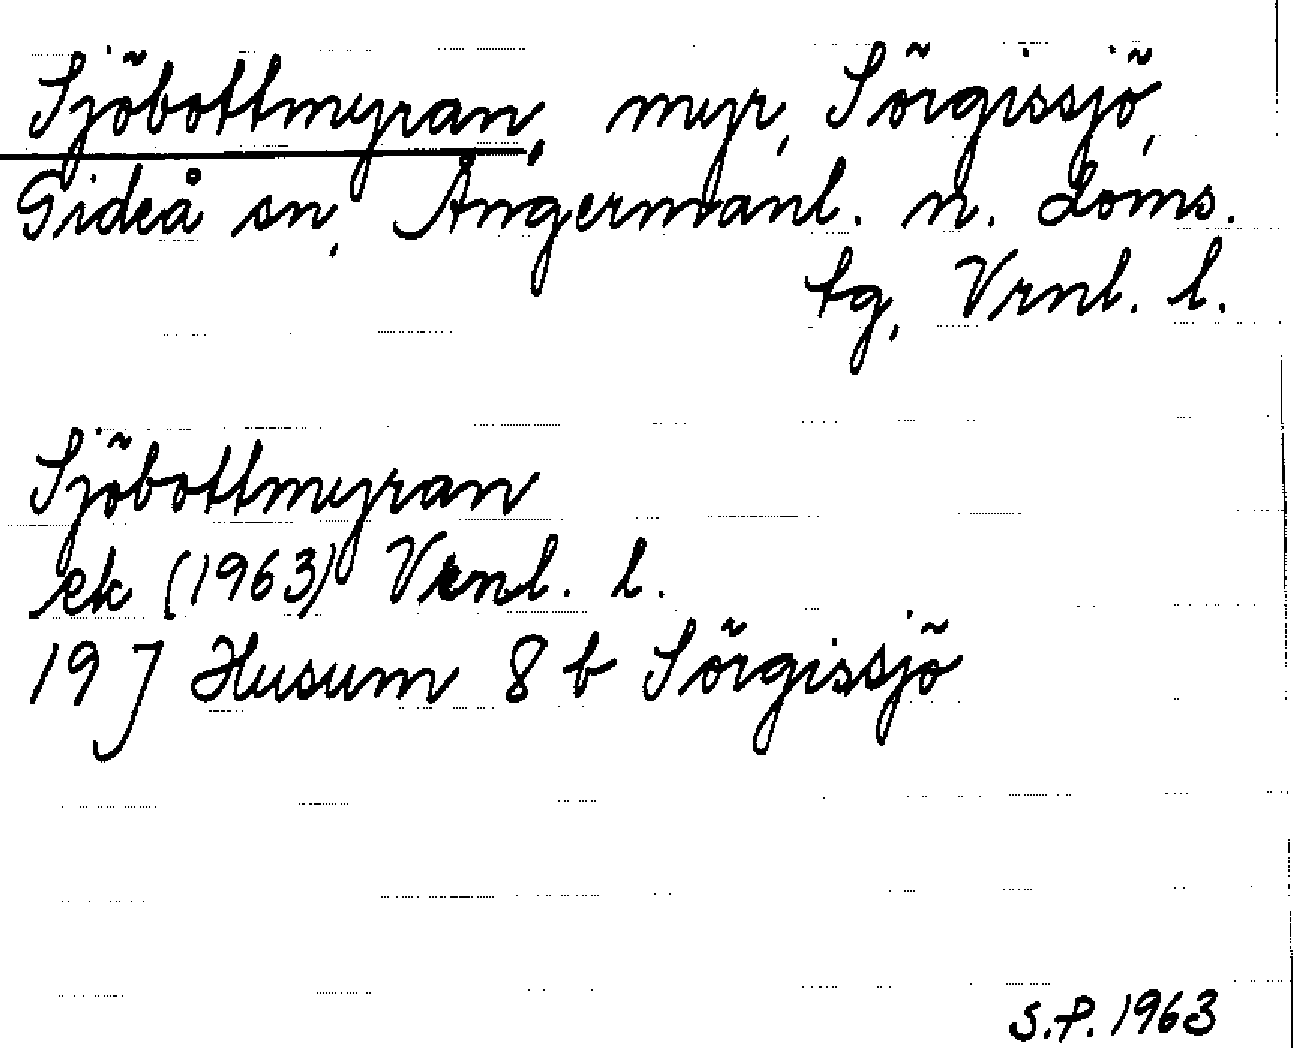 Sjöbottmyran, myr, Sörgissjö,
Gideå sn, Ångermanl. n. doms.
tg, Vrnl. l.
Sjöbottmyran
ek (1963) Vrnl. l.
19 J Husum 8 b Sörgissjö
S.P. 1963